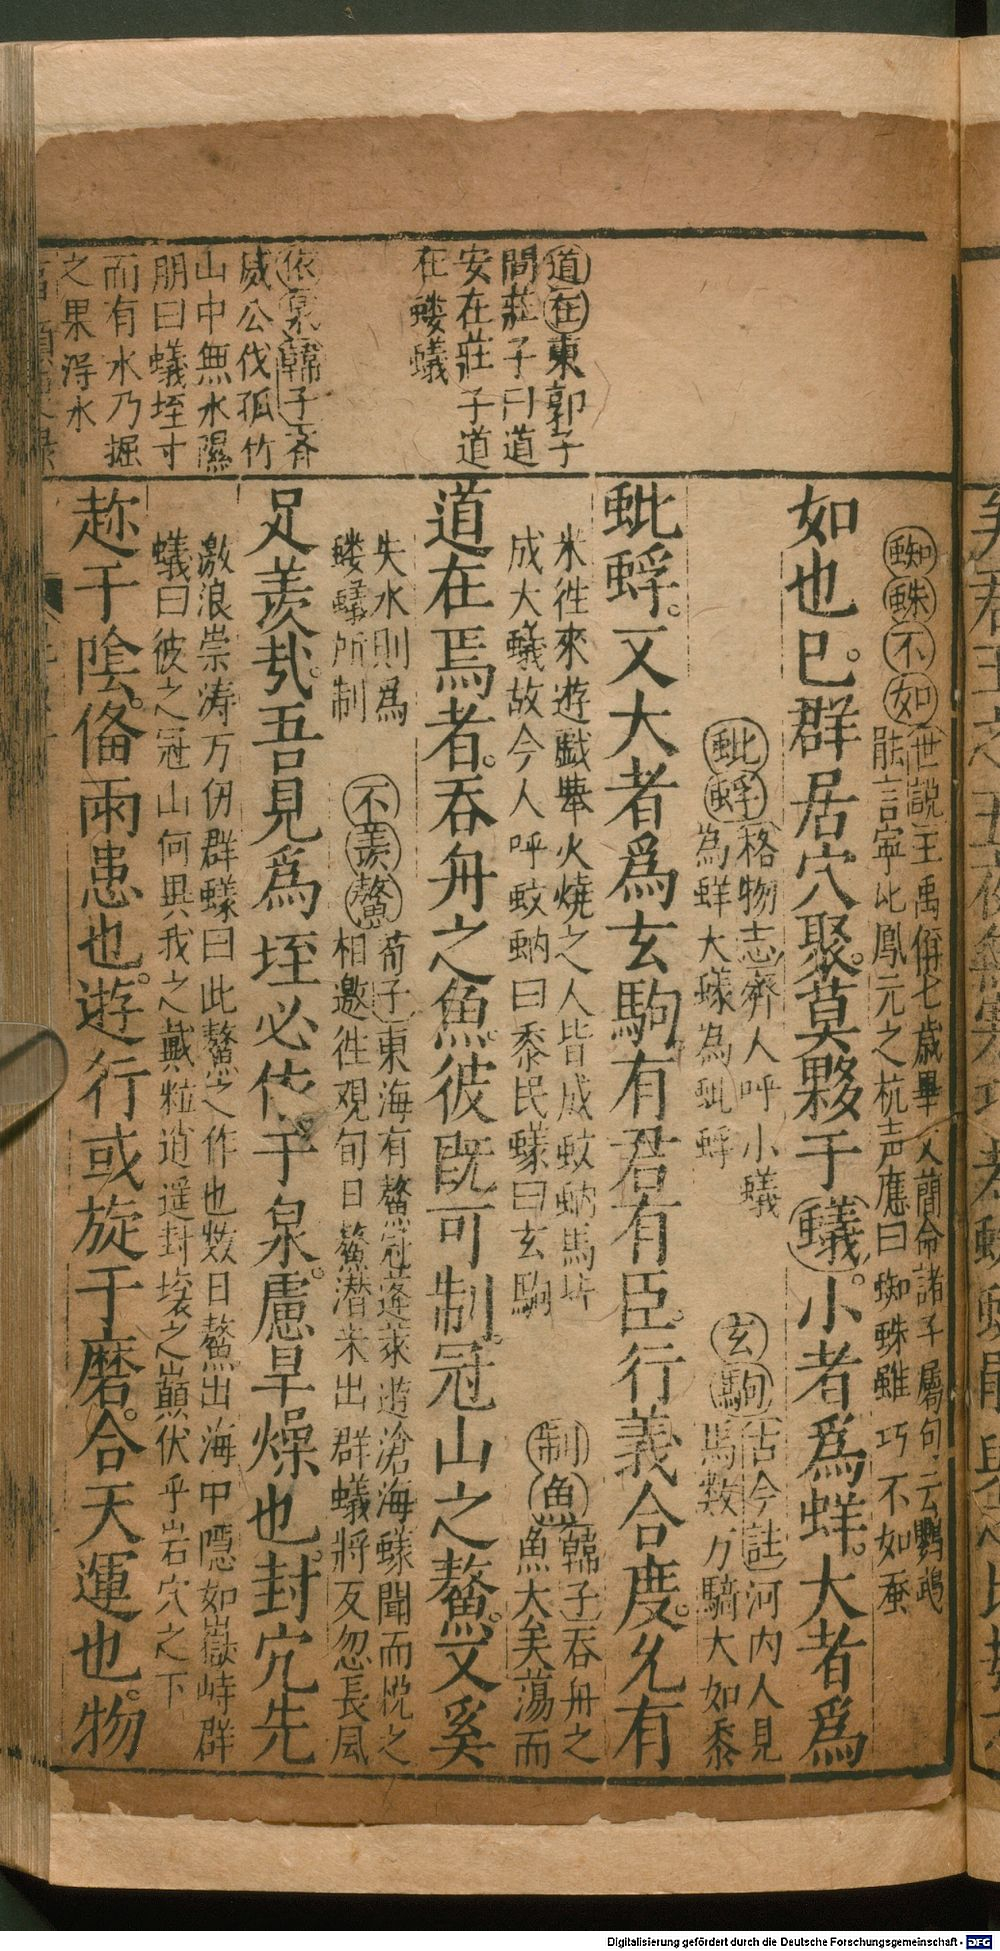 道在東郭子
問莊子曰道
安在莊子道
在螻蟻
依泉韓子齊
威公伐孤竹
山中無水隰
朋曰蟻垤寸
而有水乃掘
之果得水
蜘蛛不如世說王禹偁七歲畢文簡命諸子屬句云鸚鵡
能言寧比鳳元之杭声應曰蜘蛛雖巧不如蚕
如也巳群居穴聚莫夥于蟻小者爲蛘大者爲
蚍蜉格物志齊人呼小蟻
為蛘大蟻為蚍蜉
玄駒古今註河内人見
馬数万騎大如黍
蚍蜉又大者爲玄駒有君有臣行義合度允有
米徃來遊戯舉火燒之人皆成蚊蚋馬皆
成大蟻故今人呼蚊蚋曰黍民蟻曰玄駒
制魚韓子吞舟之
魚大矣蕩而
道在焉者吞舟之魚彼既可制冠山之鰲又奚
失水則爲
螻蟻所制
不羨鰲荀子東海有鰲冠蓬萊遊滄海蟻聞而悅之
相邀徃观旬日鰲潜未出群蟻將反忽長風
足羨㦲吾見爲垤必依于泉慮旱燥也封穴先
激浪崇涛万仞群蟻曰此鰲之作也数日鰲出海中隱如嶽峙群
蟻曰彼之冠山何異我之戴粒逍遥封壤之巔伏乎岩穴之下
趂于陰俻雨患也遊行或旋于磨合天運也物
Digitalisierung gefördert durch die Deutsche Forschungsgemeinschaft - DFG